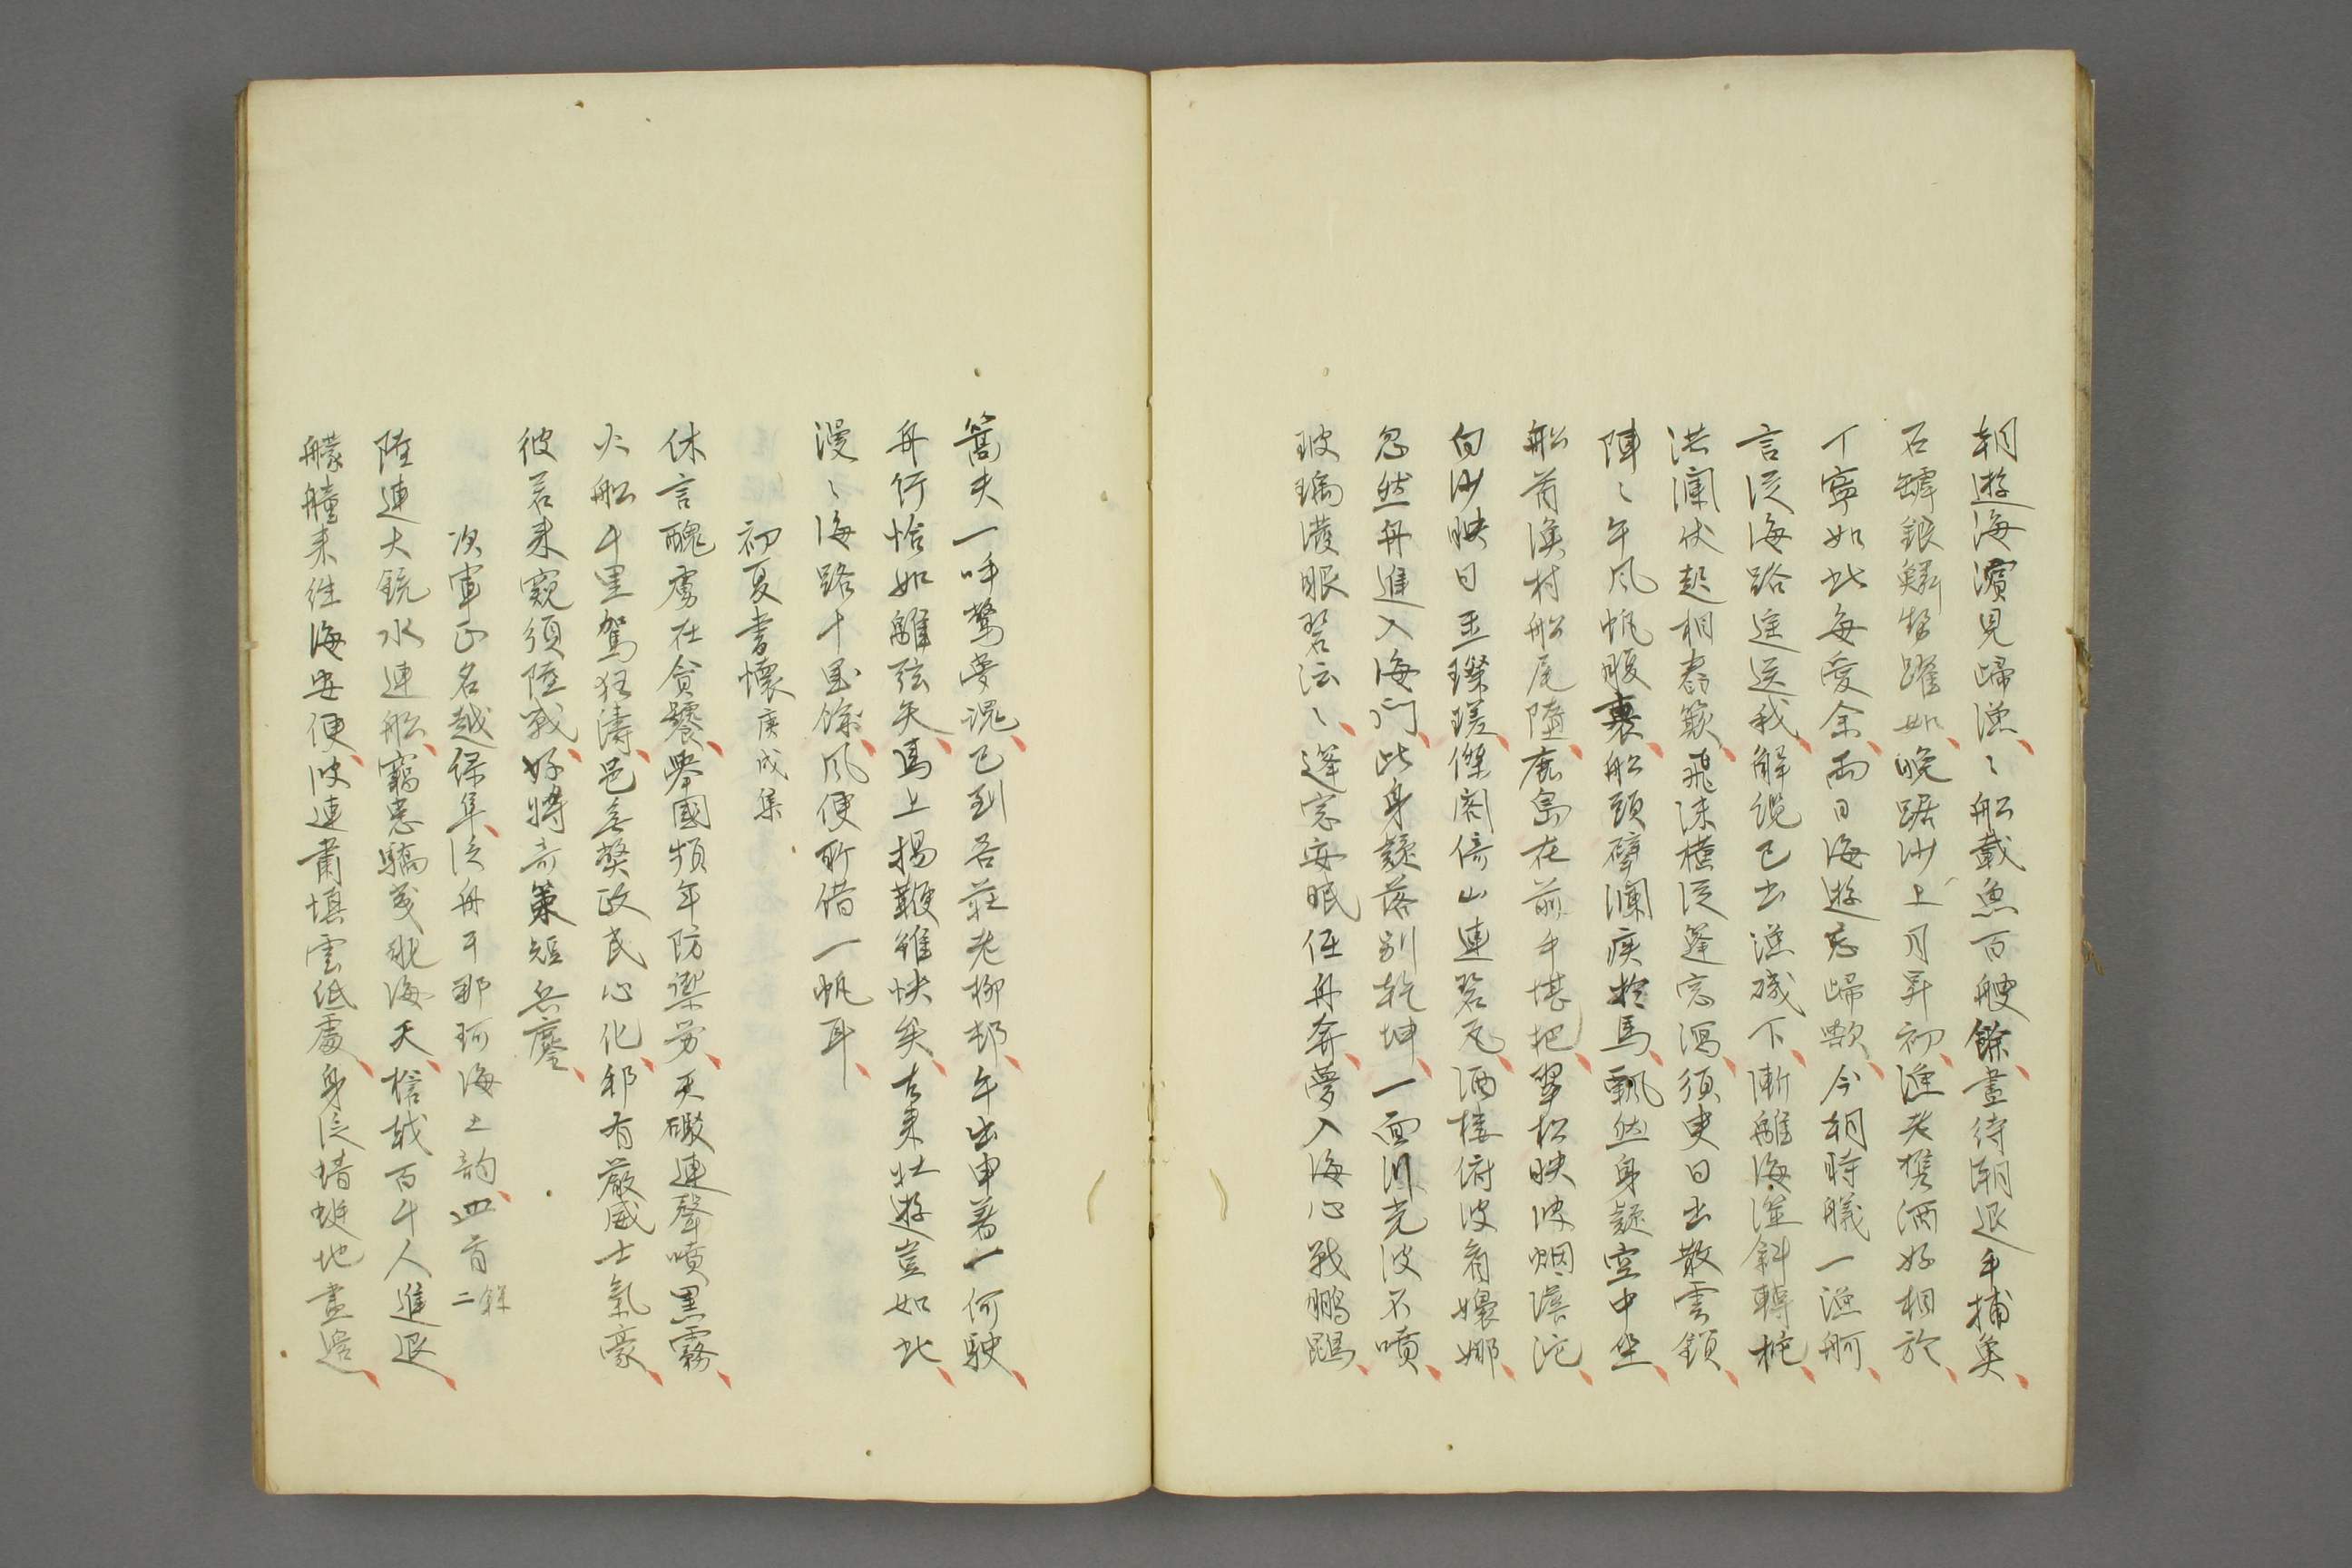 朝遊海濱見歸漁〻船載魚百艘餘晝待潮退手捕魚
石罅銀鱗勢躍如晩踞沙上月昇初漁老携酒好相於
丁寧如此每愛余兩日海遊忘歸歟今朝時艤一漁舸
言從海路遥送我解纜已出漁磯下漸離海澨斜轉柁
洪瀾伏起相舂簸飛沫橫從篷窓瀉須臾日出散雲鎖
陣〻午風帆腹裹船頭劈瀾疾於馬飄然身疑空中坐
船首漁村船尾陸鹿島在前手堪把翠松映波烟漠沱
白沙映日玉璨瑳傑閣倚山連碧瓦酒樓俯波看嬝娜
忽然舟進入海門此身疑落別乾坤一面川光波不噴
玻璃漾眼碧沄〻篷窓安眠任舟奔夢入海心戰鵬鵾
篙夫一呼驚夢魂已到吾莊老柳邨午出申著一何駛
舟行恰如離弦矢馬上揚鞭雖快矣古來壯遊豈如此
漫〻海路十里餘風便所借一帆耳
初夏書懷庚戌集
休言醜虜在貪饕擧國頻年防禦勞天礮連聲噴黑霧
火船千里駕狂濤邑無獘政民心化邦有嚴威士氣豪
彼若来窺須陸戰好將奇策短兵鏖
次軍正名越保隼從舟于那珂海上韵四首二錄
陸連大銃水連船竊惡驕戎亂海天檣越百千人進退
艨艟来往海安便波連肅愼雲低處身從蜻蜓地盡邊